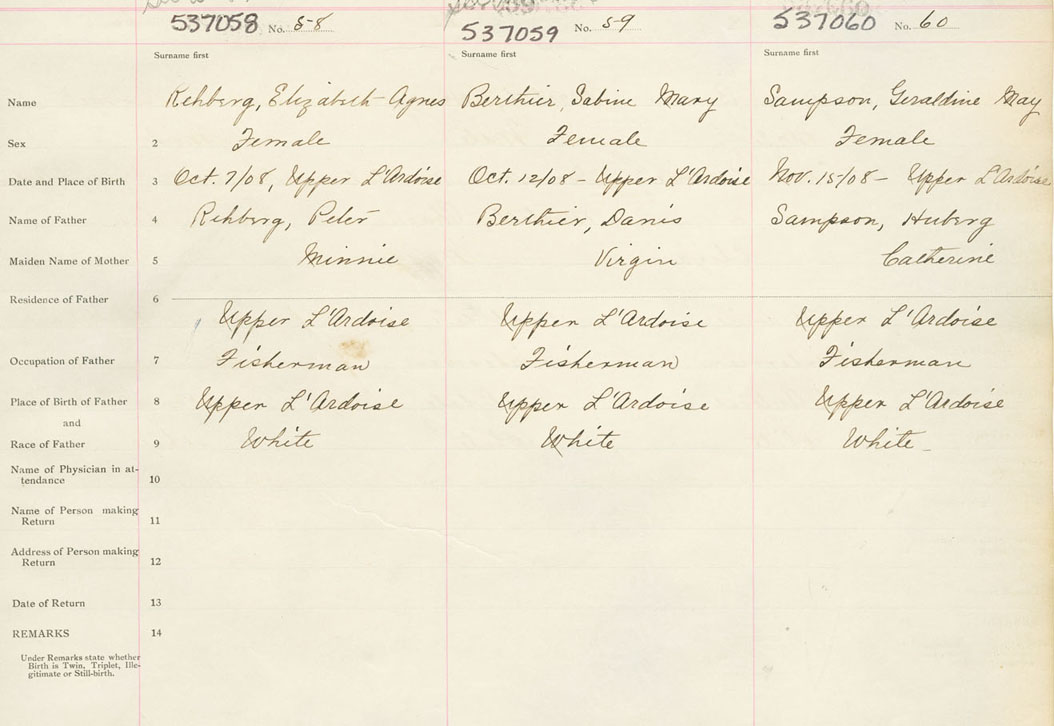 537058 No. 58
537059 No. 59
537060 No. 60
Surname first Surname first Surname first
Name Rehberg, Elizabeth Agnes Berthier, Sabine Mary Sampson, Geraldine May
Sex 2 Female Female Female
Date and Place of Birth 3 Oct. 7/08, Upper L'Ardoise Oct. 12/08 - Upper L'Ardoise Nov. 15/08 - Upper L'Ardoise
Name of Father 4 Rehberg, Peter Berthier, Danis Sampson, Huberg
Maiden Name of Mother 5 Minnie Virgin Catherine
Residence of Father 6
Upper L'Ardoise Upper L'Ardoise Upper L'Ardoise
Occupation of Father 7 Fisherman Fisherman Fisherman
Place of Birth of Father 8 Upper L'Ardoise Upper L'Ardoise Upper L'Ardoise
and
Race of Father 9 White White White
Name of Physician in at-
tendance 10
Name of Person making
Return 11
Address of Person making
Return 12
Date of Return 13
REMARKS 14
Under Remarks state whether
Birth is Twin, Triplet, Ille-
gitimate or Still-birth.